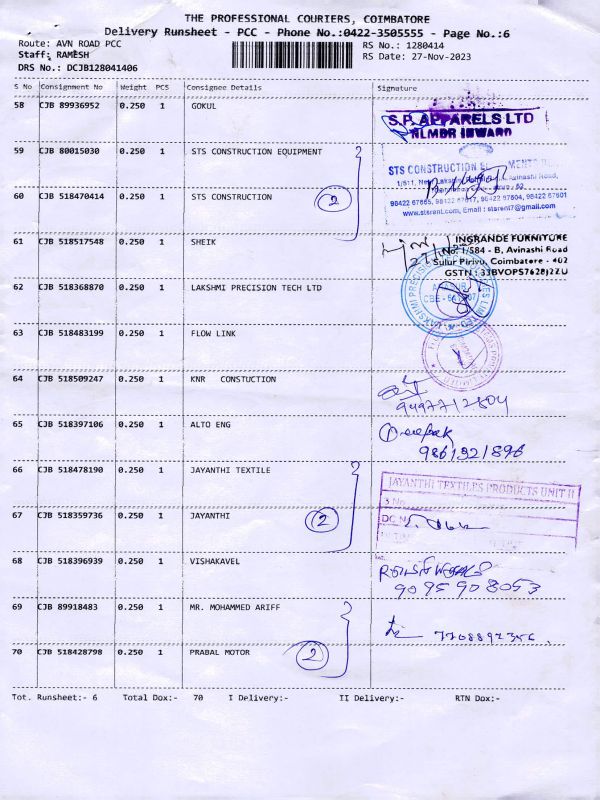 THE PROFESSIONAL COURIERS, COIMBATORE
Delivery Runsheet - PCC - Phone No.:0422-3505555 - Page No.:6
Route: AVN ROAD PCC RS No.: 1280414
Staff: RAMESH RS Date: 27-Nov-2023
DRS No.: DCJB128041406
S No Consignment No Weight PCS Consignee Details Signature
58 CJB 89936952 0.250 1 GOKUL
S.P. APPARELS LTD
NLMDR INWARD
59 CJB 80015030 0.250 1 STS CONSTRUCTION EQUIPMENT
STS CONSTRUCTION
60 CJB 518470414 0.250 1 STS CONSTRUCTION 2
www.starent.com, Email : starent7@gmail.com
61 CJB 518517548 0.250 1 SHEIK
INGRANDE FURNITURE
No. 1/584 - B, Avinashi Road
Sulur Pirivu, Coimbatore - 402
GSTN : 33BVOPS7628J2ZU
62 CJB 518368870 0.250 1 LAKSHMI PRECISION TECH LTD
63 CJB 518483199 0.250 1 FLOW LINK
64 CJB 518509247 0.250 1 KNR CONSTUCTION
9497712804
65 CJB 518397106 0.250 1 ALTO ENG
Deepak
9861321896
66 CJB 518478190 0.250 1 JAYANTHI TEXTILE
JAYANTHI TEXTILES PRODUCTS UNIT II
67 CJB 518359736 0.250 1 JAYANTHI 2
68 CJB 518396939 0.250 1 VISHAKAVEL
9095908053
69 CJB 89918483 0.250 1 MR. MOHAMMED ARIFF
7708892356
70 CJB 518428798 0.250 1 PRABAL MOTOR 2
Tot. Runsheet:- 6 Total Dox:- 70 I Delivery:- II Delivery:- RTN Dox:-